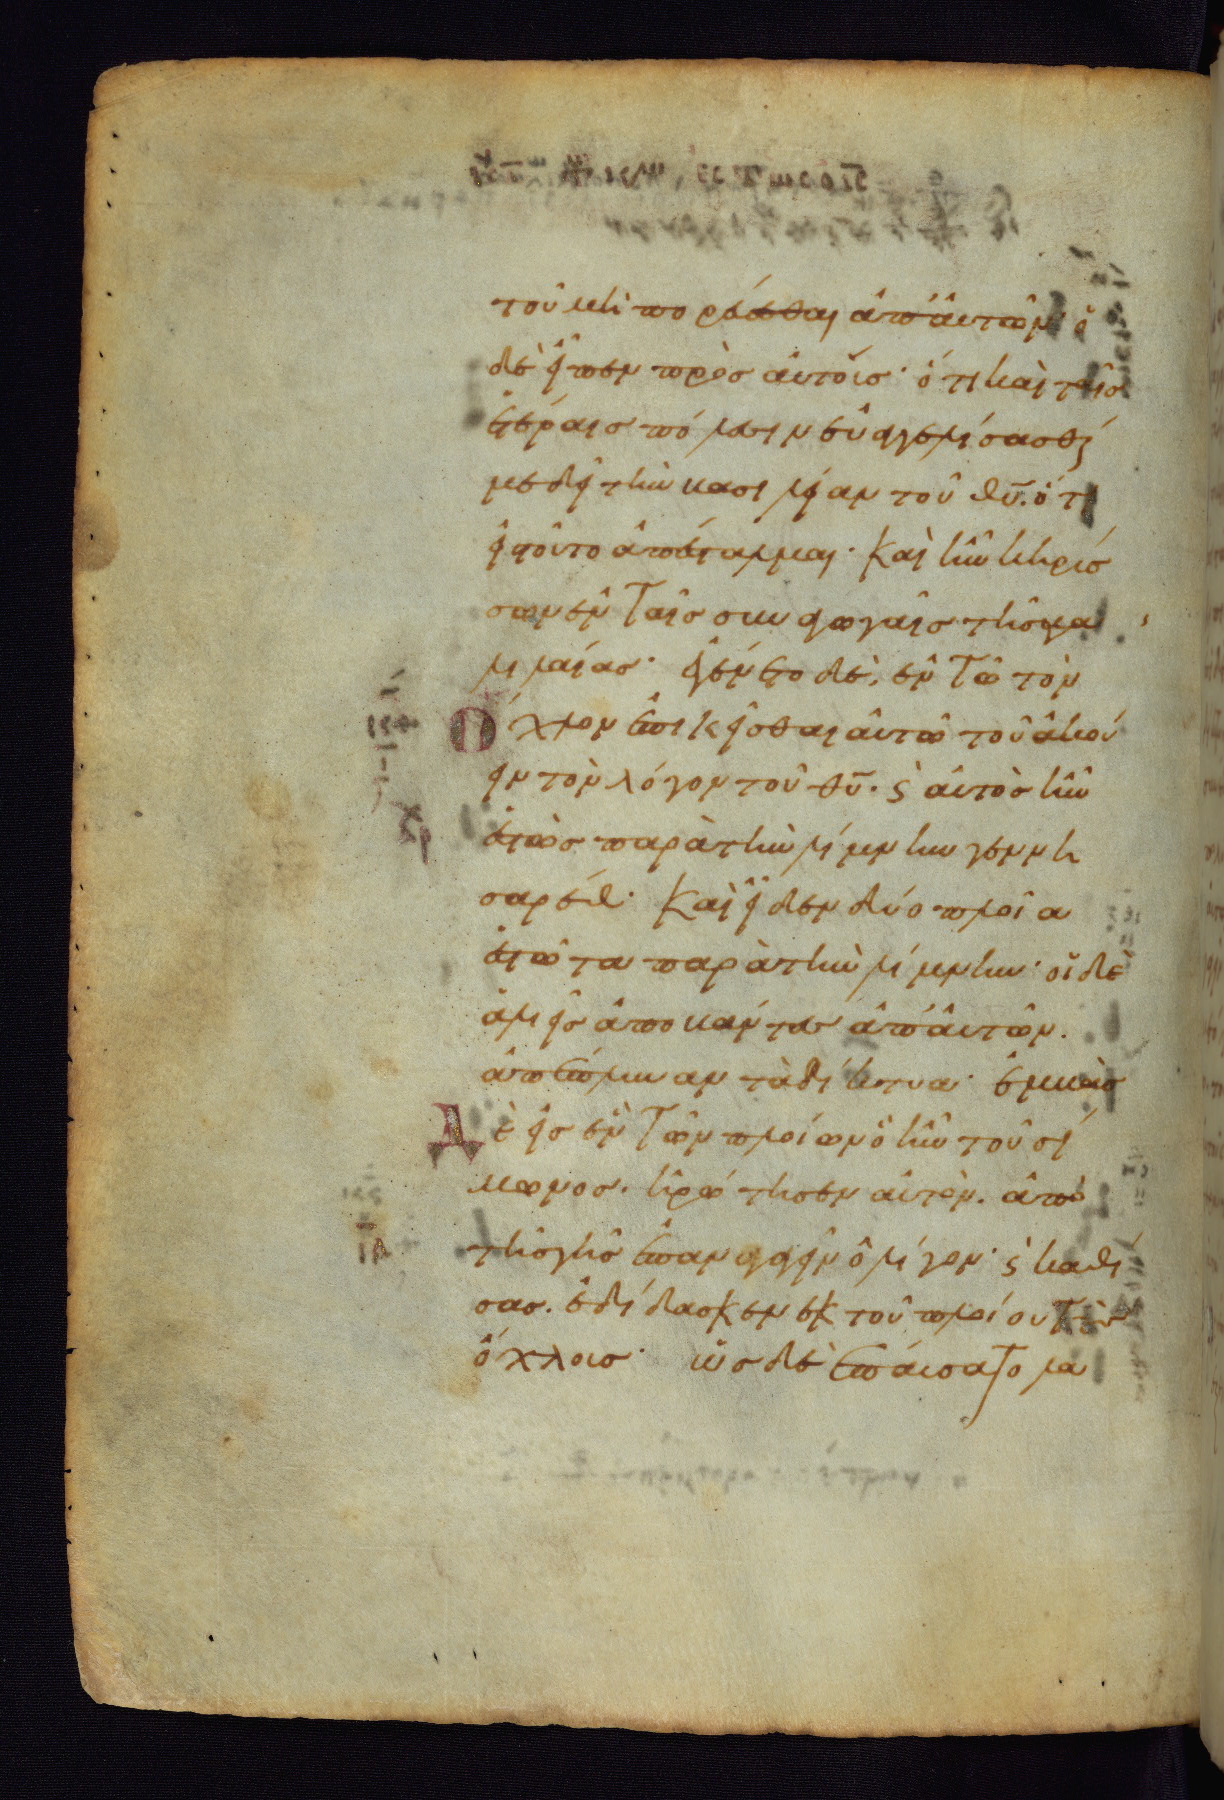 τοῦ μὴ πορεύεσθαι ἀπ' ἀυτῶν· ὁ
δὲ εἶπεν πρὸσ ἀυτοῖσ· ὅτι καὶ ταῖσ
ἑτέραισ πόλεσιν εὐαγγελίσασθαί
με δεῖ τὴν βασιλείαν τοῦ θῡ. ὅτι
εἰς τοῦτο ἀπέσταλμαι· Καὶ ἦν κηρύσ
σων ἐν ταῖσ συναγωγαῖσ τῆσ γα
λιλαίασ· ἐγένετο δὲ, ἐν τῶ τὸν
ὄχλον ἐπικεῖσθαι ἀυτῶ τοῦ ἀκού
ειν τὸν λόγον τοῦ θῡ. ϗ ἀυτὸσ ἦν
ἑστὼσ παρὰ τὴν λίμνην γεννη
σαρέθ· Καὶ εἶδεν δύο πλοῖα
ἑστῶτα παρὰ τὴν λίμνην· οἱ δὲ
ἁλιεῖσ ἀποβάντεσ ἀπ' ἀυτῶν.
ἀπέπλυναν τὰ δίκτυα· ἐμβὰσ
Δὲ εἰσ ἓν τῶν πλοίων ὃ ἦν τοῦ σί
μωνοσ. ἠρώτησεν ἀυτὸν. ἀπὸ
τῆσ γῆσ ἐπαναγαγεῖν ὀλίγον· ϗ καθί
σασ. ἐδίδασκεν ἐκ τοῦ πλοίου τοὺσ
ὄχλουσ· ὡσ δὲ ἐπάυσατο λα